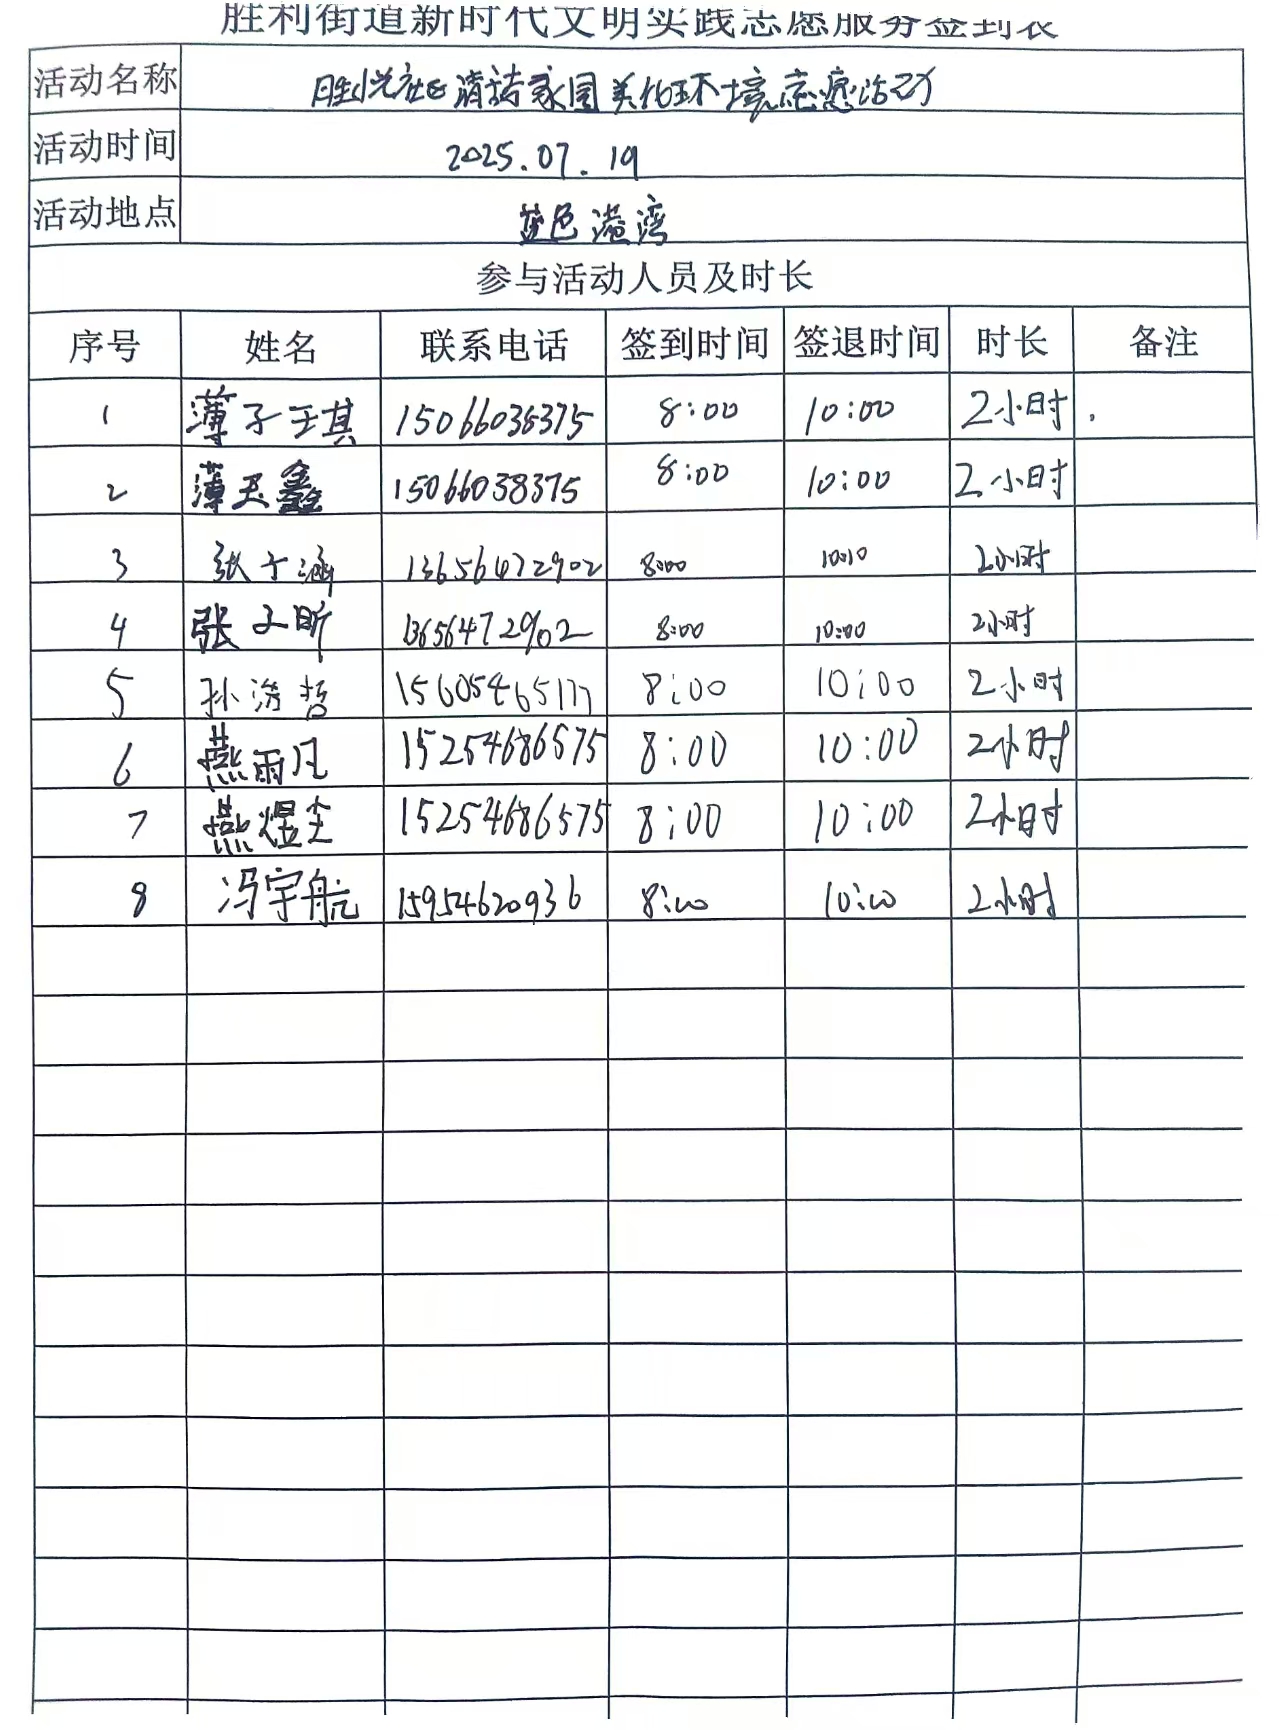 胜利街道新时代文明实践志愿服务签到表
活动名称 胜悦社区清洁家园美化环境志愿活动
活动时间 2025.07.19
活动地点 蓝色港湾
参与活动人员及时长
序号 姓名 联系电话 签到时间 签退时间 时长 备注
1 薄子琪 15066038375 8:00 10:00 2小时
2 薄玉鑫 15066038375 8:00 10:00 2小时
3 张子涵 13656472902 8:00 10:10 2小时
4 张子昕 13656472902 8:00 10:00 2小时
5 孙浩哲 15605465177 8:00 10:00 2小时
6 燕雨凡 15254686575 8:00 10:00 2小时
7 燕煜尘 15254686575 8:00 10:00 2小时
8 冯宇航 15954620936 8:00 10:00 2小时